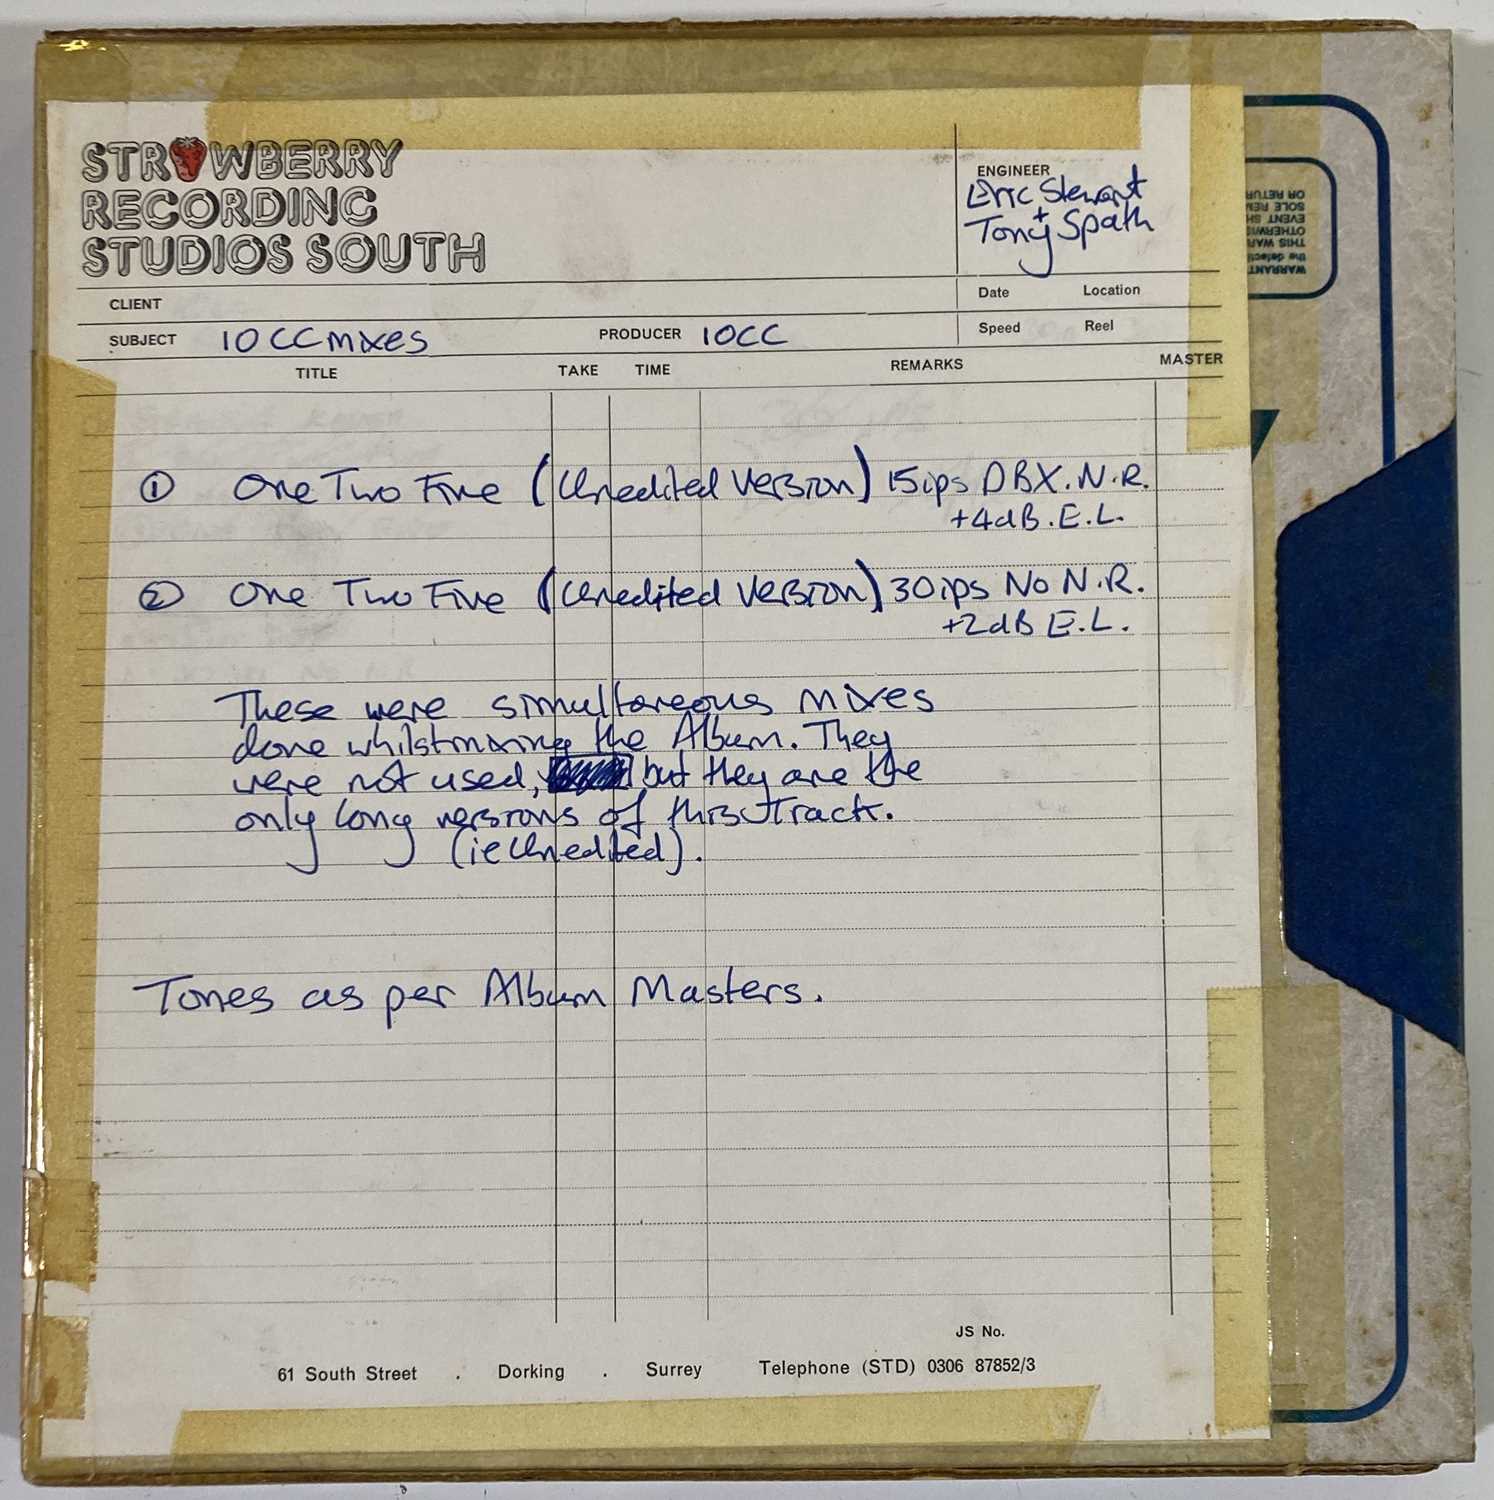 STRAWBERRY
RECORDING
STUDIOS SOUTH
ENGINEER
Eric Stewart
+
Tony Spath
CLIENT
Date Location
SUBJECT 10CC mixes PRODUCER 10CC
Speed Reel
TITLE TAKE TIME REMARKS MASTER
① One Two Five (Unedited Version) 15ips DBX.N.R.
+4dB.E.L.
② One Two Five (Unedited Version) 30ips No N.R.
+2dB E.L.
These were simultaneous mixes
done whilst mixing the Album. They
were not used, but they are the
only long versions of this Track.
(ie Unedited).
Tones as per Album Masters.
JS No.
61 South Street . Dorking . Surrey Telephone (STD) 0306 87852/3
WARRANT
the defecti
THIS WAR
OTHERWIS
EVENT SH
SOLE REM
OR RETUR